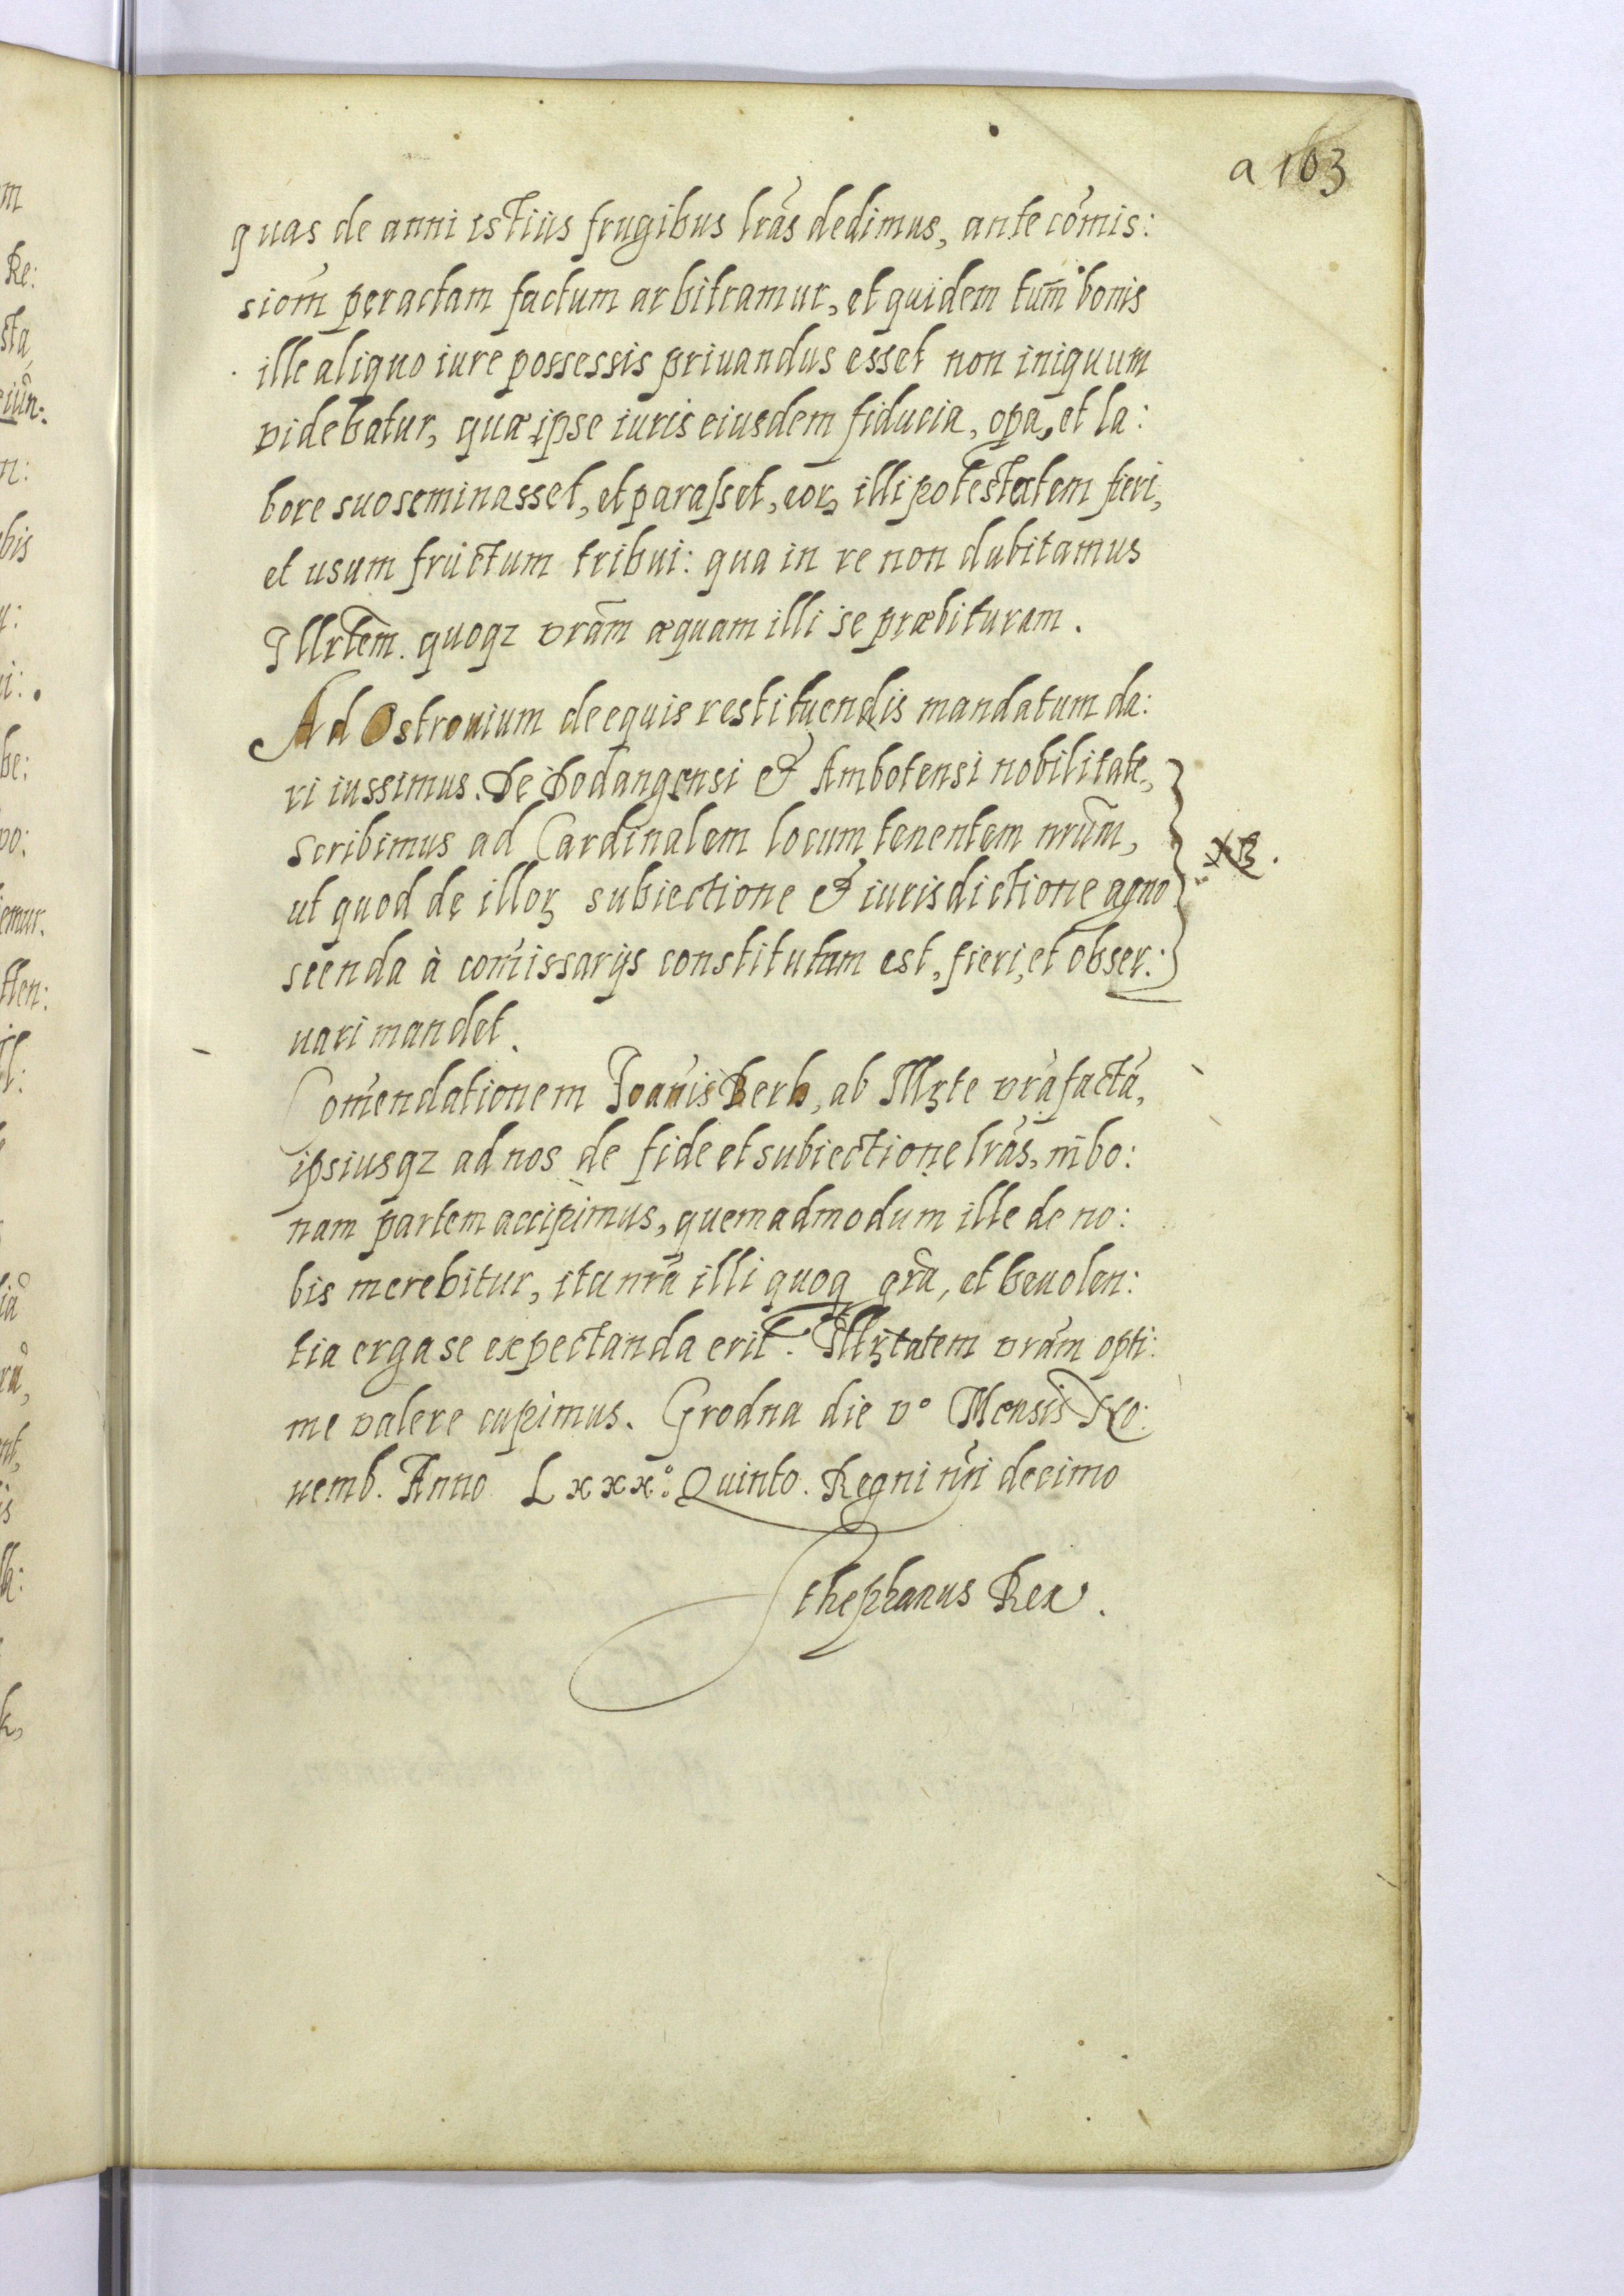 a 103
quas de anni istius frugibus lrãs dedimus, ante cõmis:
siom̃ peractam factum arbitramur, et quidem tum̃ bonis
ille aliquo iure possessis priuandus esset non iniquum
videbatur, quæ ipse iuris eiusdem fiducia, opa, et la:
bore suo seminasset, et parasset, eoꝝ illi potestatem fieri,
et usum fructum tribui: qua in re non dubitamus
Illrtem̃. quoqꝫ vrãm æquam illi se præbituram.
Ad Ostrouium de equis restituendis mandatum da:
ri iussimus. De Dodangensi & Ambotensi nobilitate,
scribimus ad Cardinalem locum tenentem nrũm,
ut quod de illoꝝ subiectione & iurisdictione agno
scenda à com̃issarijs constitutum est, fieri, et obser:
uari mandet.
Com̃endationem Joañis Berh, ab Illꝛte vrã factã,
ipsiusqꝫ ad nos de fide et subiectione lrãs, in bo:
nam partem accipimus, quemadmodum ille de no:
bis merebitur, ita nrã illi quoq grã, et beuolen:
tia erga se expectanda erit. Illꝛtatem vrãm opti:
me valere cupimus. Grodna die vº Mensis No:
uemb. Anno Lxxxº: Quinto. Regni nr̃i decimo
Sthephanus Rex.